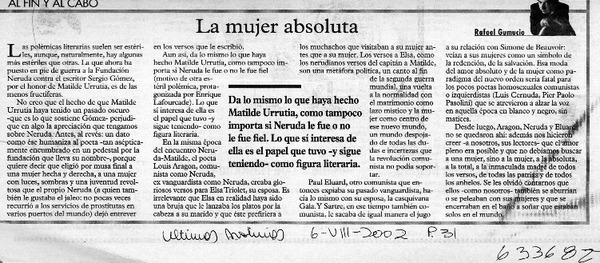 AL FIN Y AL CABO
La mujer absoluta
Rafael Gumucio
Las polémicas literarias suelen ser estéri-
les, aunque, naturalmente, hay algunas
más estériles que otras. La que ahora ha
puesto en pie de guerra a la Fundación
Neruda contra el escritor Sergio Gómez,
por el honor de Matilde Urrutia, es de las
menos fructíferas.
No creo que el hecho de que Matilde
Urrutia haya tenido un pasado oscuro
-que es lo que sostiene Gómez- perjudi-
que en algo la apreciación que tengamos
sobre Neruda. Antes, al revés: un dato
como éste humaniza al poeta -tan aséptica-
mente encumbrado en un pedestal por la
fundación que lleva su nombre-, porque
quiere decir que eligió por musa final a una
mujer hecha y derecha, a una mujer
con luces, sombras y una juventud revol-
tosa que el propio Neruda (a quien tam-
bién le gustaba el jaleo: no pocas veces
recurrió a los servicios de prostitutas en
varios puertos del mundo) dejó entrever
en los versos que le escribió.
Aun así, da lo mismo lo que haya
hecho Matilde Urrutia, como tampoco im-
porta si Neruda le fue o no le fue fiel
(motivo de otra es-
téril polémica,
protagonizada por
Enrique
Lafourcade). Lo que
sí interesa de ella es
el papel que tuvo -y
sigue teniendo- como
figura literaria.
En la misma época
del encuentro Neru-
da-Matilde, el poeta
Louis Aragon, comu-
nista como Neruda,
ex vanguardista como Neruda, creaba glo-
riosos versos para Elsa Triolet, su esposa. Es
irrelevante que Elsa en realidad haya sido
una bruja que le lanzaba los platos por la
cabeza a su marido y que éste prefiriera a
Da lo mismo lo que haya hecho
Matilde Urrutia, como tampoco
importa si Neruda le fue o no
le fue fiel. Lo que sí interesa de
ella es el papel que tuvo -y sigue
teniendo- como figura literaria.
los muchachos que visitaban a su mujer an-
tes que a su mujer. Los versos a Elsa, como
los nerudianos versos del capitán a Matilde,
son una metáfora política, un canto al fin
de la segunda guerra
mundial, una vuelta
a la normalidad
con el matrimonio como
lazo místico y la mu-
jer como centro de un
mundo nuevo,
un mundo despojo
de todas las du-
das e incertezas que
la revolución comu-
nista no podía sopor-
tar.
Paul Eluard, otro comunista que en-
tonces expiaba su pasado vanguardista, ha-
cía lo mismo con su esposa, la casquivana
Gala. Y Sartre, en ese tiempo también co-
munista, le sacaba de igual manera el jugo
a su relación con Simone de Beauvoir:
veían a sus mujeres como un símbolo de
la redención, de la salvación. Esa moda
del amor absoluto y de la mujer como pa-
radigma del nuevo orden sería fatal para
los pocos poetas homosexuales comunis-
tas o izquierdistas (Luis Cernuda, Pier Paolo
Pasolini) que se atrevieron a alzar la voz
en aquella época en blanco y negro, sin
matices.
Desde luego, Aragon, Neruda y Eluard
no se quedaron ahí: además nos hicieron
a -nosotros, sus lectores- que el crimen
es posible y que no debíamos buscar a
una mujer, sino a la mujer, a la absoluta,
a la total, a la inmaculada madre de todos
los versos, de todas las parejas y de todos los
anhelos. Se les olvidó contarnos que
ellos -como nosotros- también se aburrían
o se peleaban con sus mujeres y que se
encerraban en el baño a soñar que estaban
solos en el mundo.
Ultimas Noticias 6-VIII-2002 P.31
633682